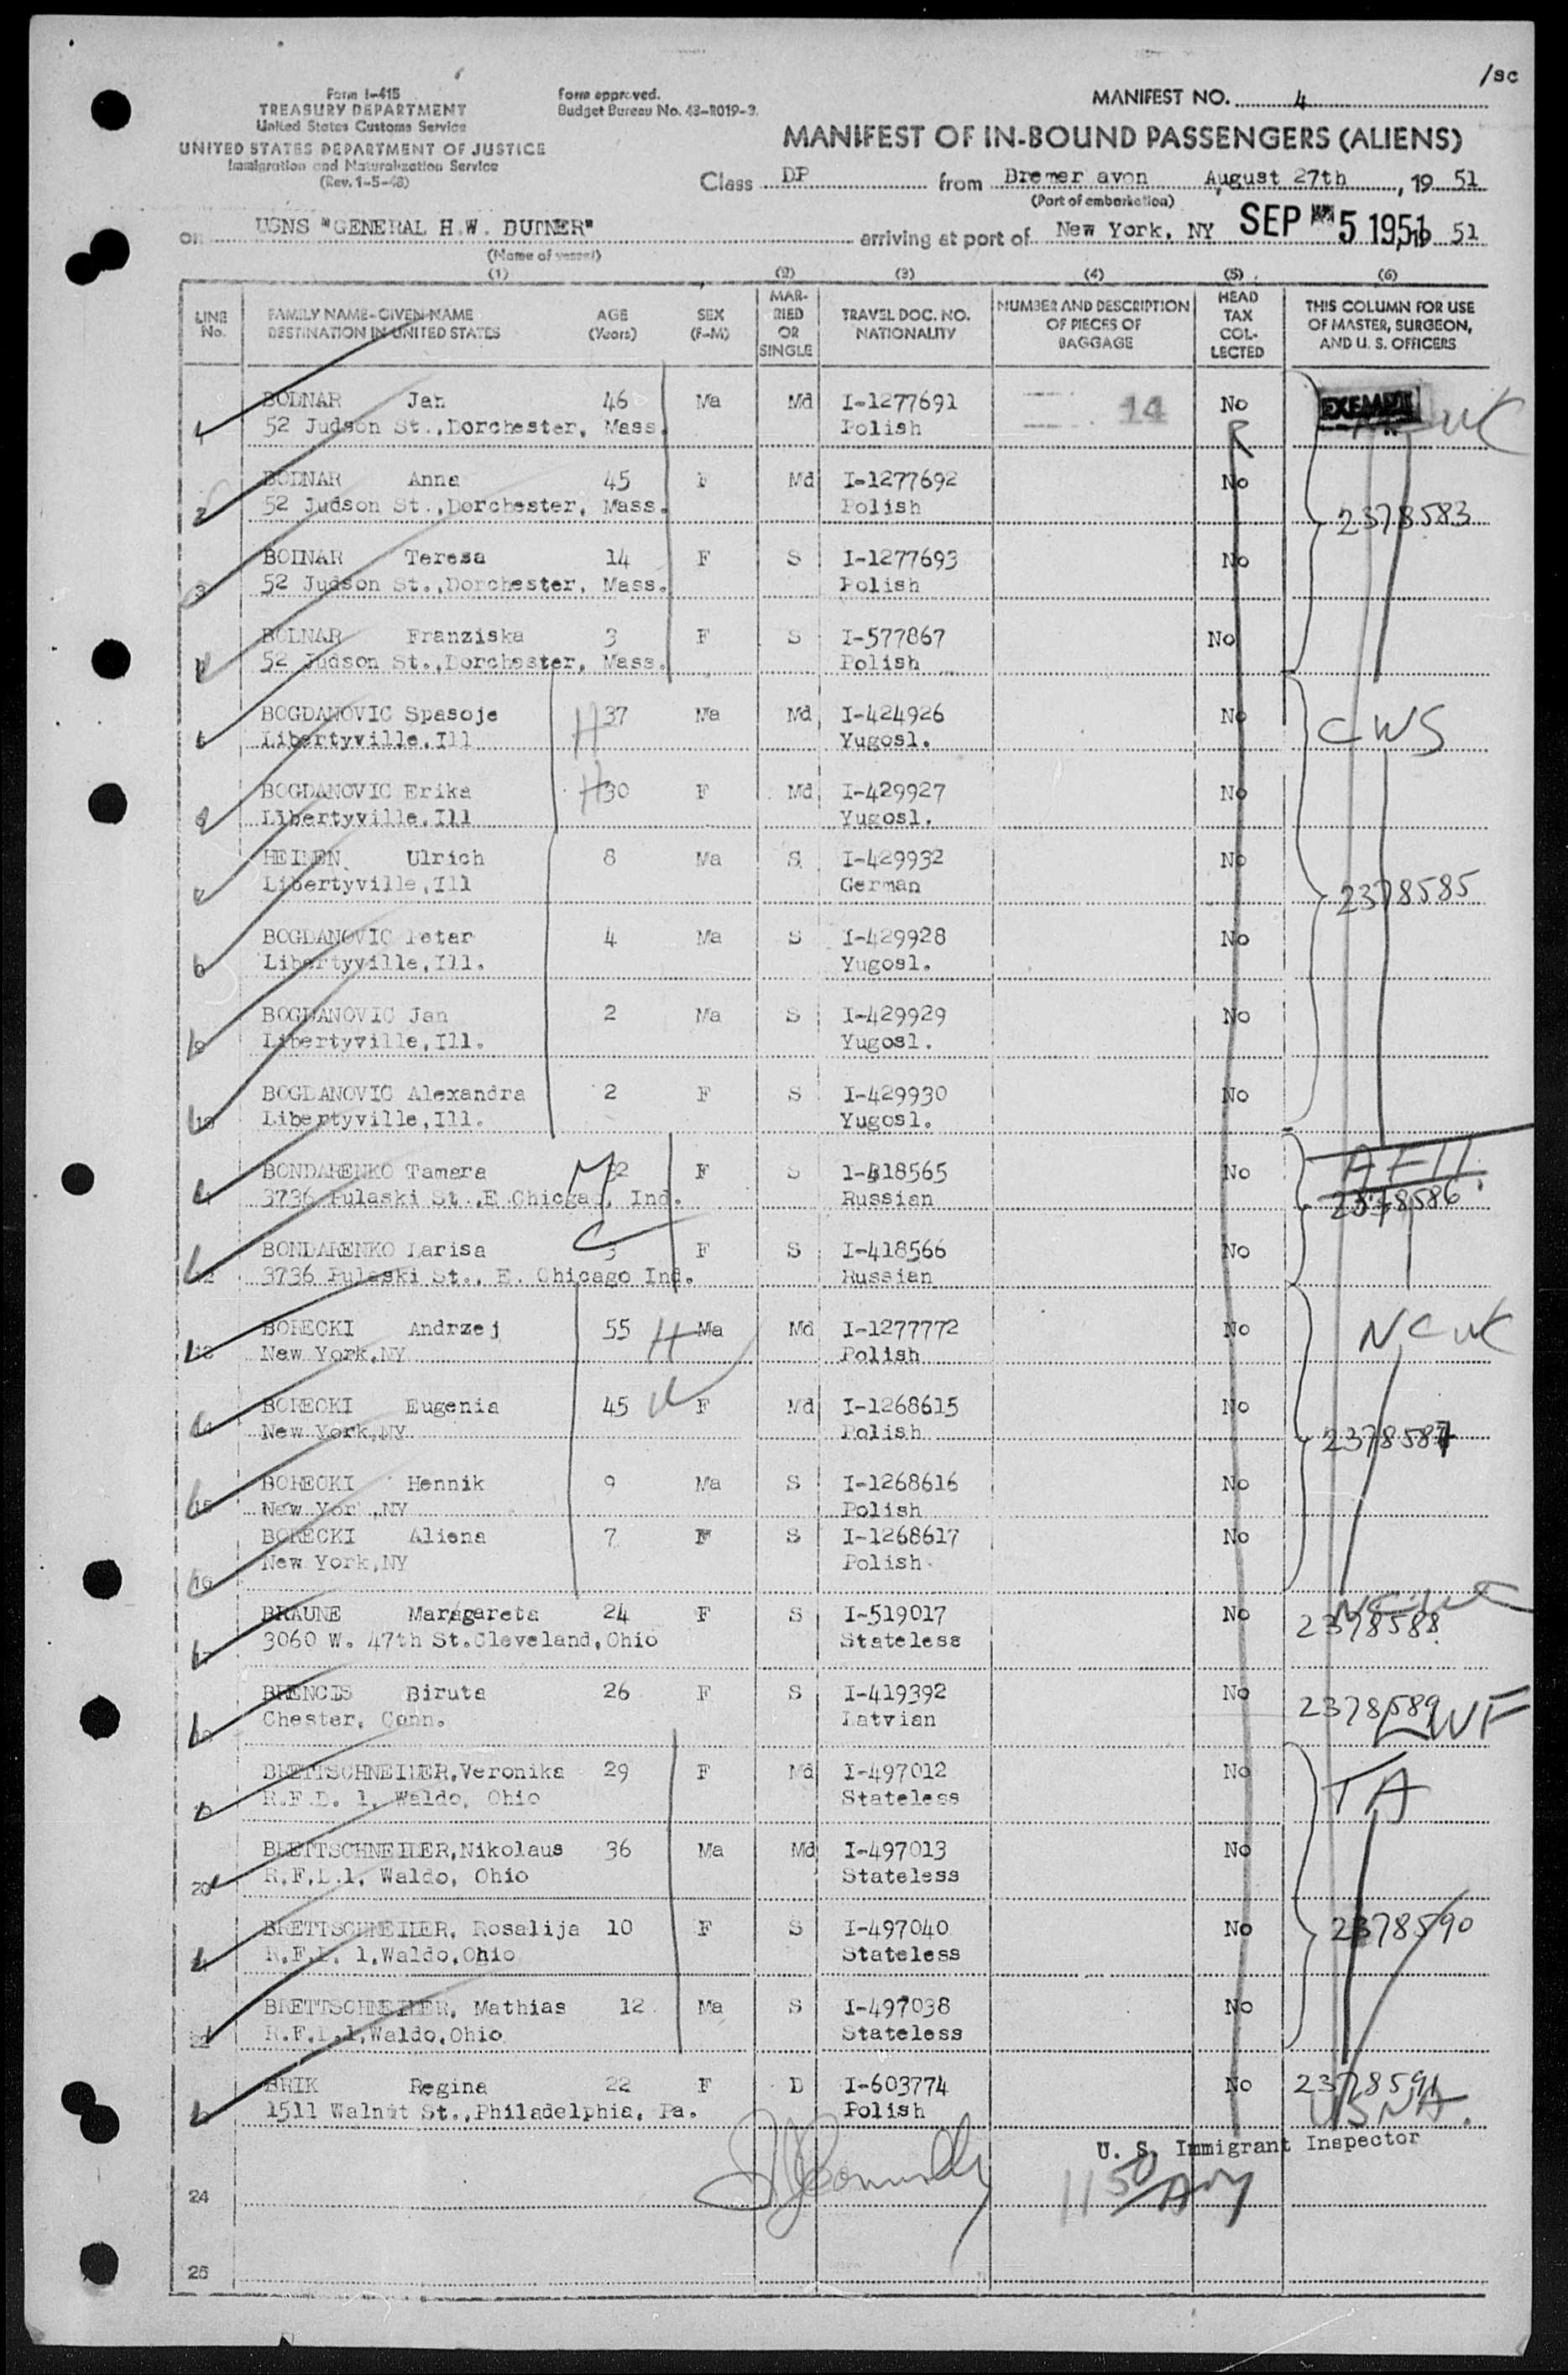 /sc
Form I-415
TREASURY DEPARTMENT
United States Customs Service
UNITED STATES DEPARTMENT OF JUSTICE
Immigration and Naturalization Service
(Rev. 1-5-48)
Form approved.
Budget Bureau No. 43-R019-3.
MANIFEST NO. 4
MANIFEST OF IN-BOUND PASSENGERS (ALIENS)
Class DP from Bremer aven August 27th, 1951
(Port of embarkation)
on USNS "GENERAL H.W. BUTNER" arriving at port of New York, NY SEP 5 1951 19 51
(Name of vessel)
(1) (2) (3) (4) (5) (6)
LINE No. FAMILY NAME-GIVEN NAME DESTINATION IN UNITED STATES AGE (Years) SEX (F-M) MARRIED OR SINGLE TRAVEL DOC. NO. NATIONALITY NUMBER AND DESCRIPTION OF PIECES OF BAGGAGE HEAD TAX COLLECTED THIS COLUMN FOR USE OF MASTER, SURGEON, AND U. S. OFFICERS
1 BODNAR Jan 46 Ma Md I-1277691 14 No EXEMPT
52 Judson St.,Dorchester, Mass. Polish
2 BODNAR Anna 45 F Md I-1277692 No
52 Judson St.,Dorchester, Mass. Polish 2378583
3 BODNAR Teresa 14 F S I-1277693 No
52 Judson St.,Dorchester, Mass. Polish
4 BODNAR Franziska 3 F S I-577867 No
52 Judson St.,Dorchester, Mass. Polish
5 BOGDANOVIC Spasoje H 37 Ma Md I-424926 No CWS
Libertyville,Ill Yugosl.
6 BOGDANOVIC Erika H 30 F Md I-429927 No
Libertyville,Ill Yugosl.
7 HEIDEN Ulrich 8 Ma S I-429932 No
Libertyville,Ill German 2378585
8 BOGDANOVIC Peter 4 Ma S I-429928 No
Libertyville,Ill. Yugosl.
9 BOGDANOVIC Jan 2 Ma S I-429929 No
Libertyville,Ill. Yugosl.
10 BOGDANOVIC Alexandra 2 F S I-429930 No
Libertyville,Ill. Yugosl.
11 BONDARENKO Tamara F S I-418565 No
3736 Pulaski St.,E.Chicgao, Ind. Russian 2378586
12 BONDARENKO Larisa 3 F S I-418566 No
3736 Pulaski St., E. Chicago Ind. Russian
13 BORECKI Andrzej 55 H Ma Md I-1277772 No NCWC
New York,NY Polish
14 BORECKI Eugenia 45 F Md I-1268615 No
New York,NY Polish 2378587
15 BORECKI Hennik 9 Ma S I-1268616 No
New Yor ,NY Polish
16 BORECKI Aliena 7 F S I-1268617 No
New York,NY Polish
17 BRAUNE Margareta 24 F S I-519017 No 2378588 NCWC
3060 W. 47th St.Cleveland,Ohio Stateless
18 BRENCIS Biruta 26 F S I-419392 No 2378589 LWF
Chester, Conn. Latvian
19 BRETTSCHNEIDER,Veronika 29 F Md I-497012 No
R.F.D. 1, Waldo, Ohio Stateless
20 BRETTSCHNEIDER,Nikolaus 36 Ma Md I-497013 No
R.F.D.1, Waldo, Ohio Stateless
21 BRETTSCHNEIDER, Rosalija 10 F S I-497040 No 2378590
R.F.D. 1,Waldo,Ohio Stateless
22 BRETTSCHNEIDER, Mathias 12 Ma S I-497038 No
R.F.D.1,Waldo,Ohio Stateless
23 BRIK Regina 22 F D I-603774 No 2378591
1511 Walnut St.,Philadelphia, Pa. Polish USNA.
U. S. Immigrant Inspector
24
25